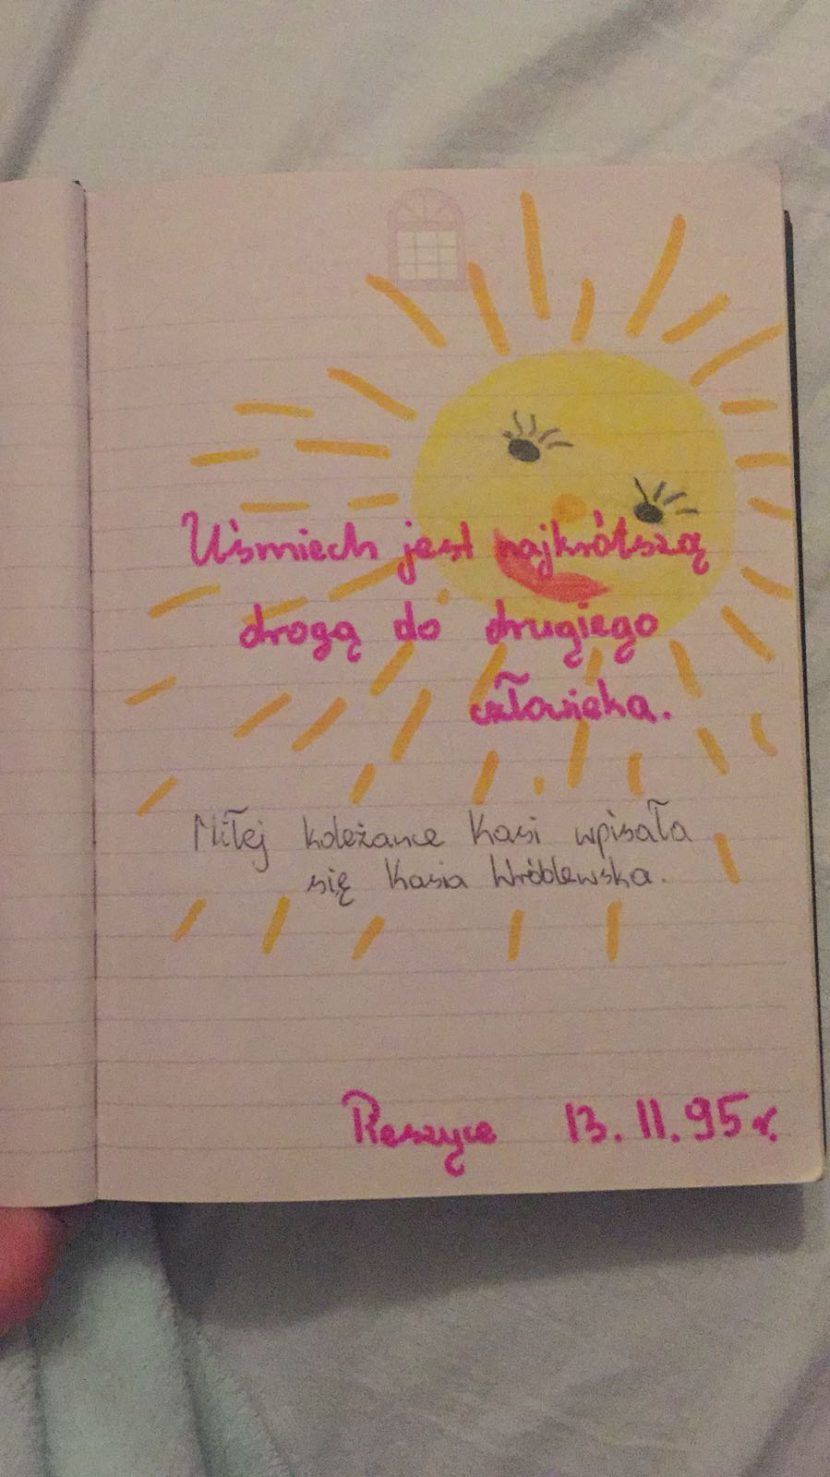 Uśmiech jest najkrótszą
drogą do drugiego
człowieka.
Miłej koleżance Kasi wpisała
się Kasia Wróblewska.
13.11.95r.